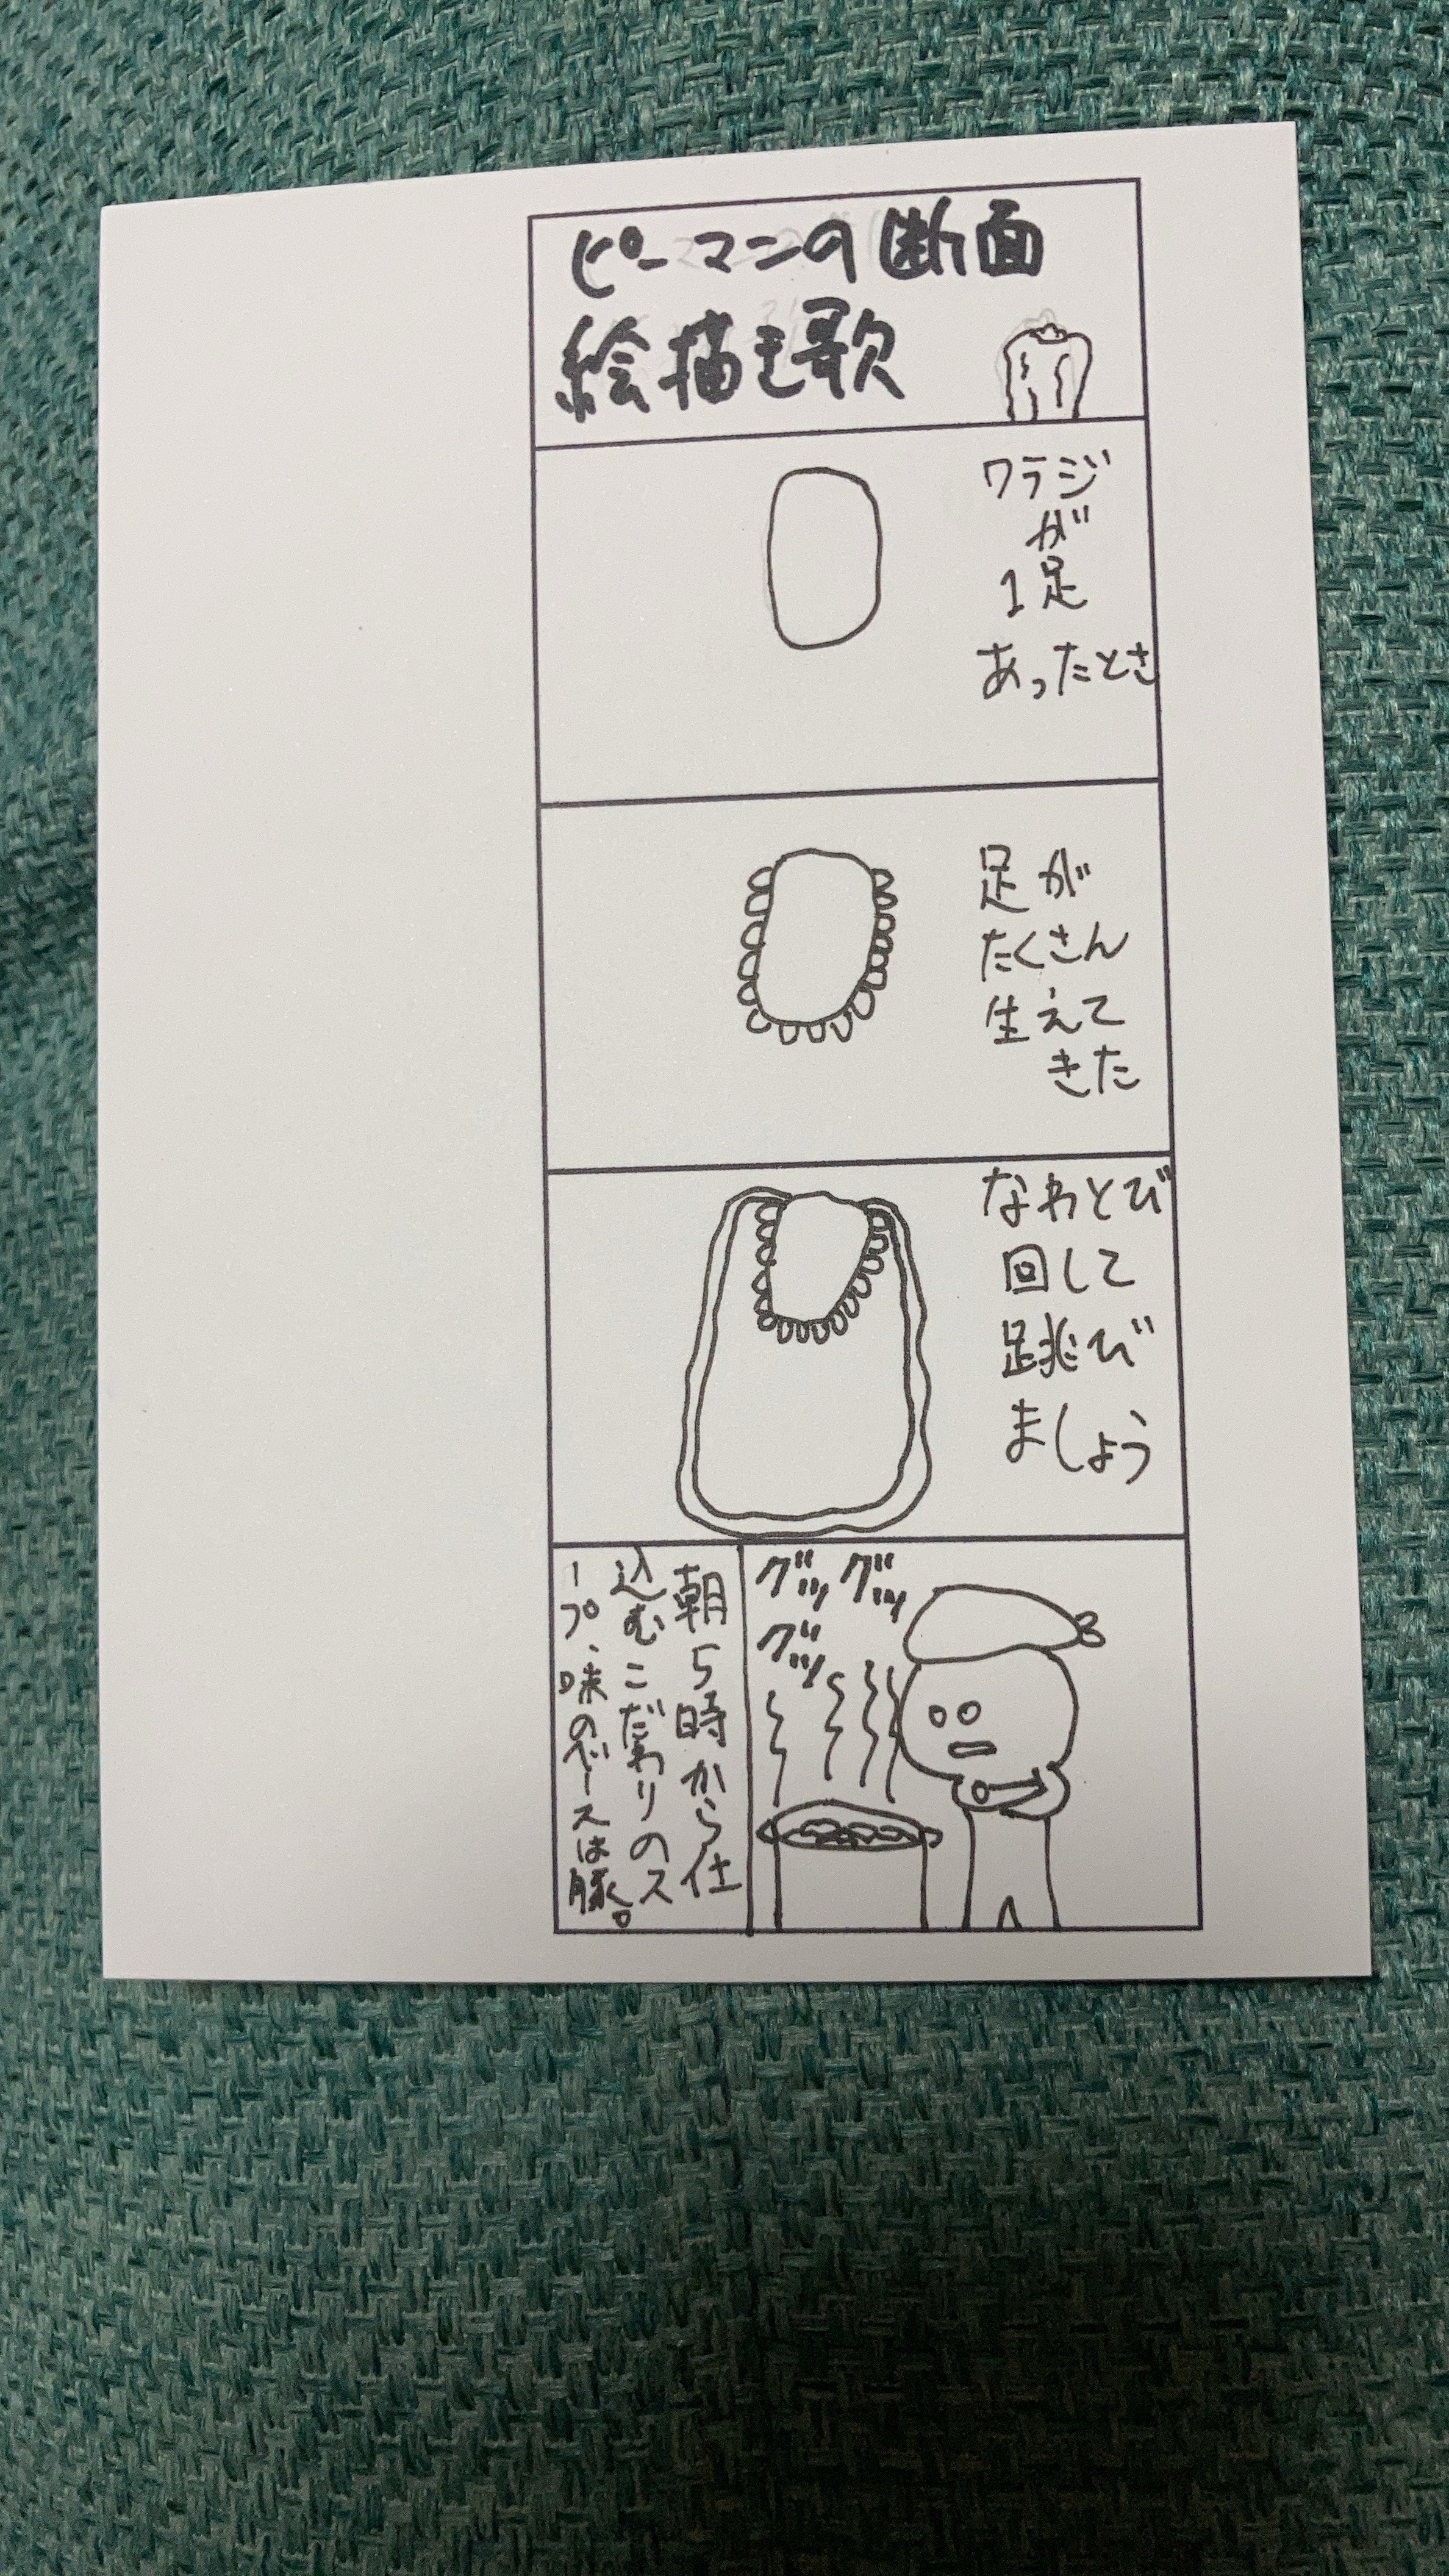 ピーマンの断面
絵描き歌
ワラジ
が
1足
あったとき
足が
たくさん
生えて
きた
なわとび
回して
跳び
ましょう
グッグッ
グッ
朝5時から仕
込むこだわりのス
ープ、味のベースは豚。